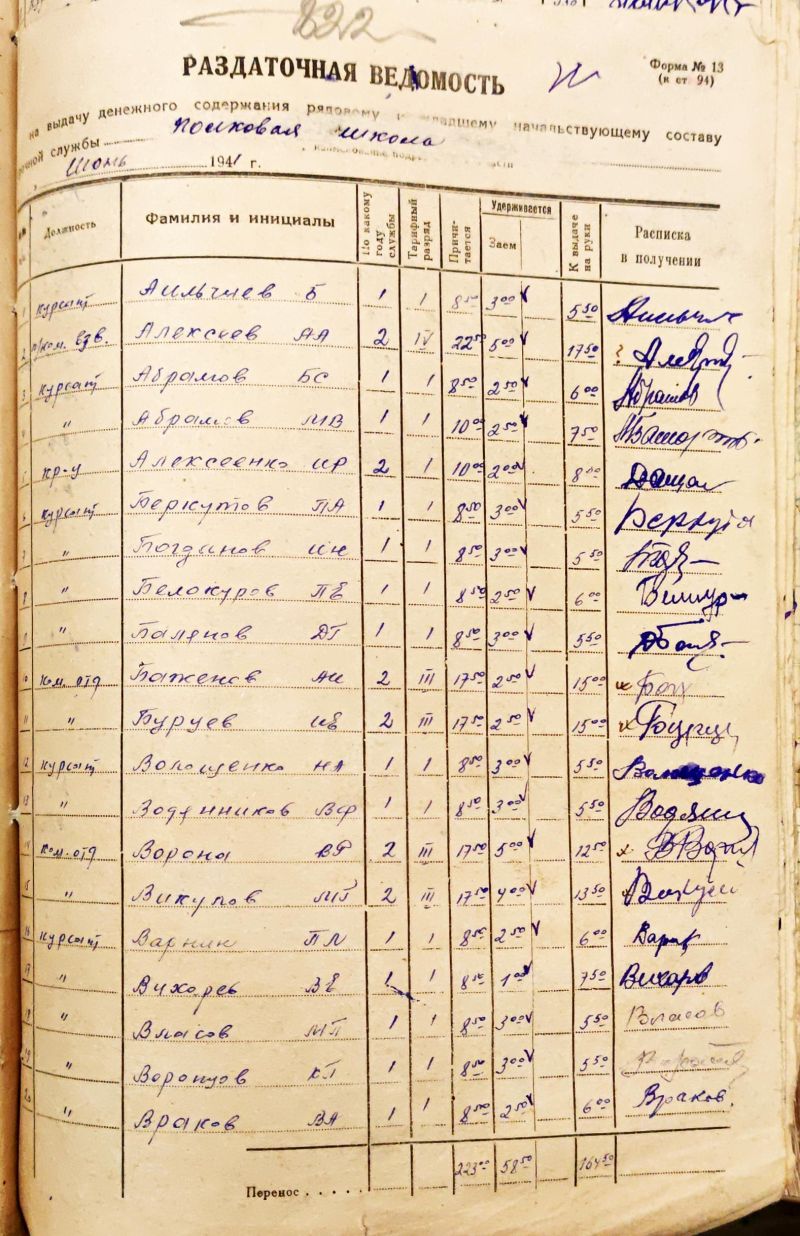 822
РАЗДАТОЧНАЯ ВЕДОМОСТЬ
Форма № 13
(к ст 94)
на выдачу денежного содержания рядовому и младшему начальствующему составу
срочной службы полковая школа
июнь 1941 г.
Должность Фамилия и инициалы По какому году службы Тарифный разряд Причитается Удерживается Заем К выдаче на руки Расписка в получении
1 курсант Аильчиев Б 1 1 8 50 3 00 5 50
2 п/ком. взв. Алексеев АА 2 IV 22 50 5 00 17 50
3 курсант Абрамов БС 1 1 8 50 2 50 6 00 Абрамов
4 " Абрамов МВ 1 1 10 00 2 50 7 50
5 кр-ц Алексеенко ИР 2 1 10 00 2 00 8 00
6 курсант Беркутов ПА 1 1 8 50 3 00 5 50
7 " Богданов ИН 1 1 8 50 3 00 5 50
8 " Белокуров ПЕ 1 1 8 50 2 50 6 00
9 " Баленов ДГ 1 1 8 50 3 00 5 50
10 ком. отд Баженов АИ 2 III 17 50 2 50 15 00
11 " Буруев ИЕ 2 III 17 50 2 50 15 00
12 курсант Волощенко НА 1 1 8 50 3 00 5 50 Волощенко
13 " Воденников ВФ 1 1 8 50 3 00 5 50
14 ком. отд Ворона ВР 2 III 17 50 5 00 12 50
15 " Викулов МГ 2 III 17 50 4 00 13 50
16 курсант Варник ПЛ 1 1 8 50 2 50 6 00
17 " Вихарев ВЕ 1 1 8 50 1 00 7 50 Вихарев
18 " Власов МП 1 1 8 50 3 00 5 50 Власов
19 " Воронцов КП 1 1 8 50 3 00 5 50
20 " Враков ВА 1 1 8 50 2 50 6 00 Враков.
Перенос . . . . . 223 00 58 50 164 50